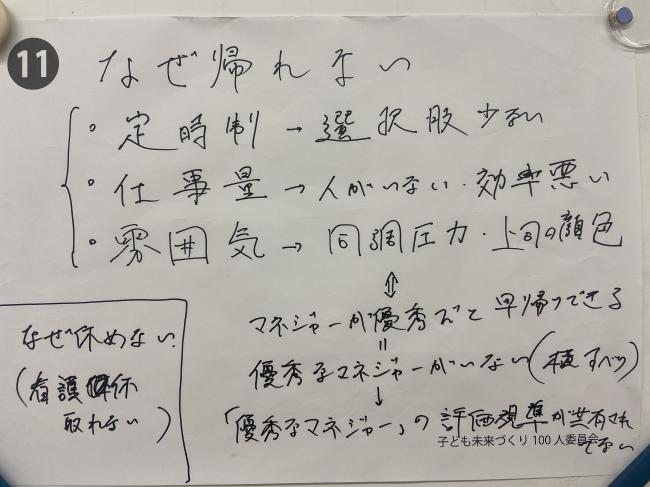 11
なぜ帰れない
・定時制→選択肢少ない
・仕事量→人がいない・効率悪い
・雰囲気→同調圧力・上司の顔色
⇕
マネジャーが優秀だと早帰りできる
=
優秀なマネジャーがいない(横すべり)
↓
「優秀なマネジャー」の評価規準が共有されてない
なぜ休めない
(看護休
取れない)
子ども未来づくり100人委員会